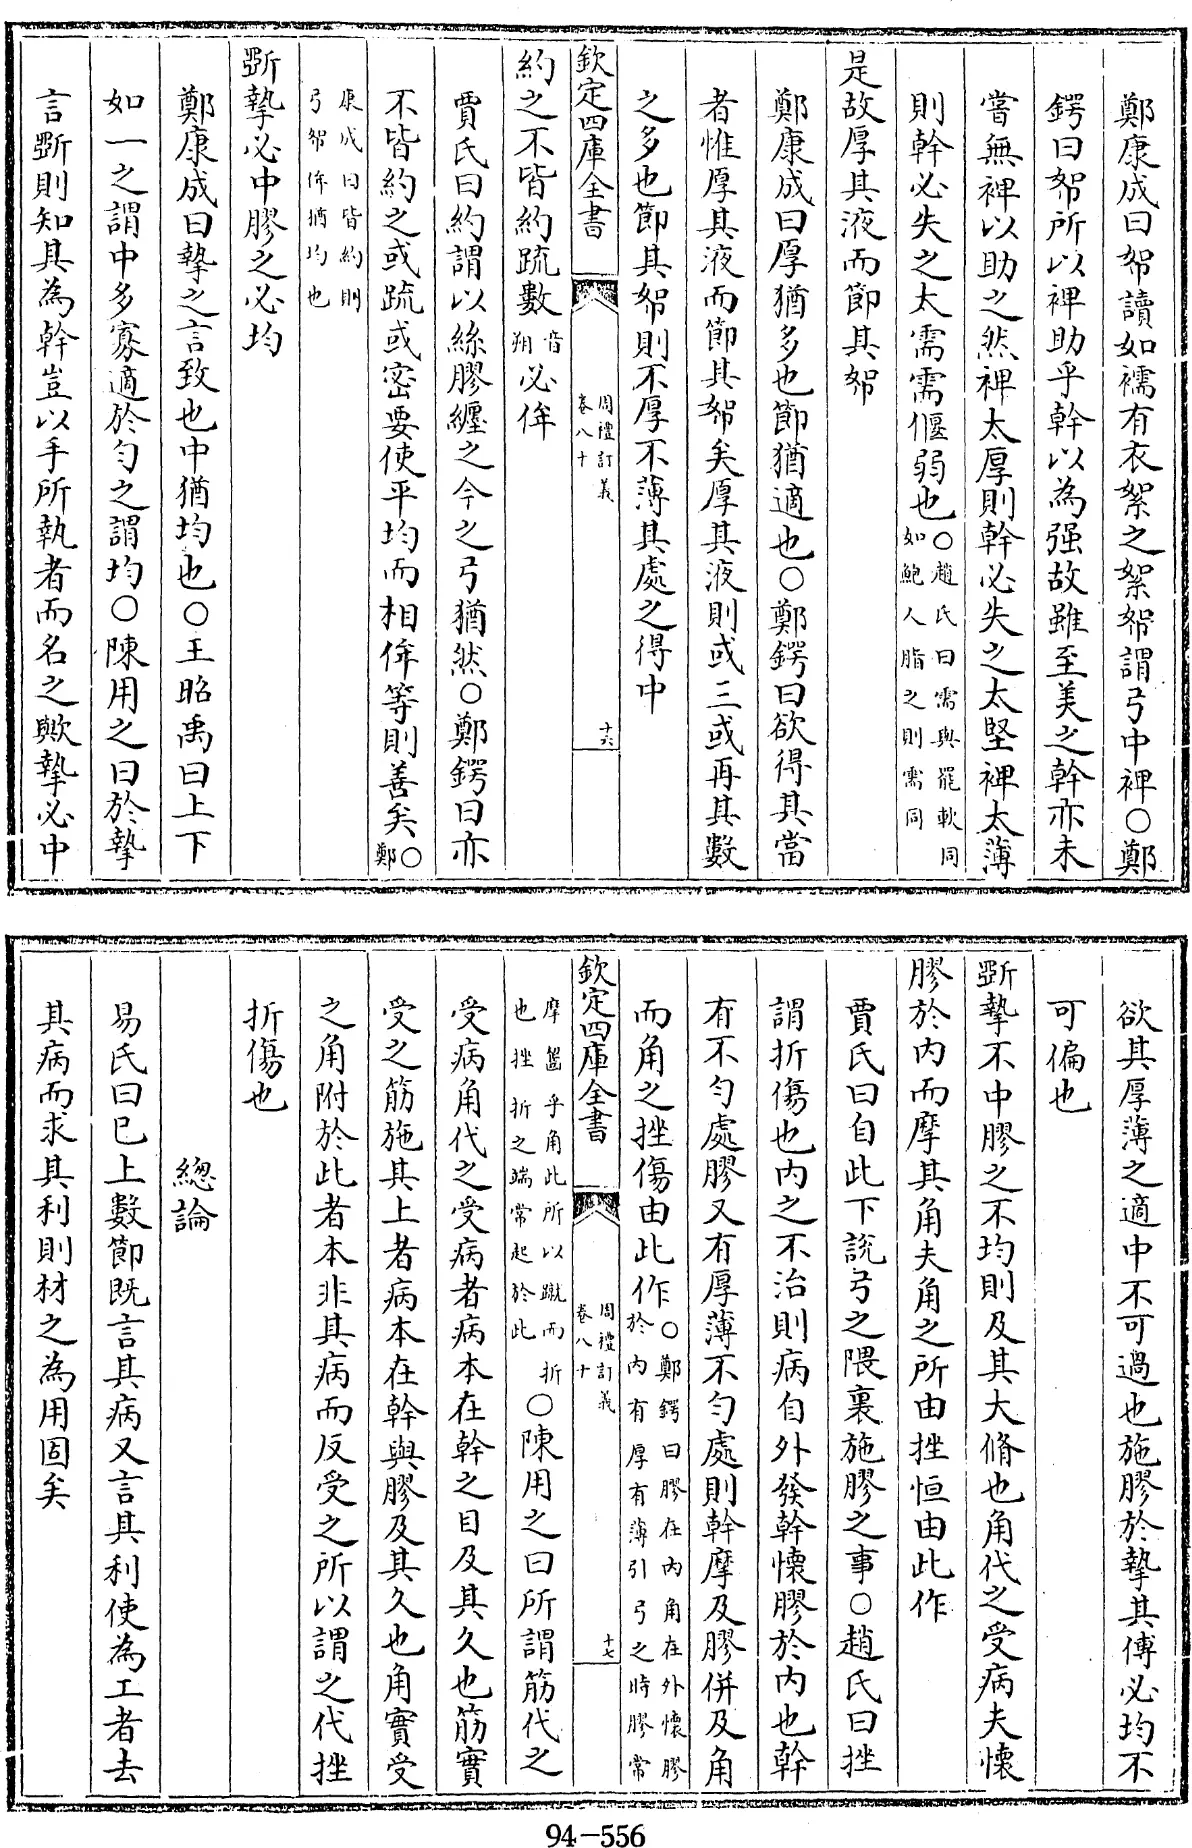 鄭康成曰帤讀如襦有衣絮之絮帤謂弓中裨○鄭
鍔曰帤所以裨助乎幹以為强故雖至美之幹亦未
嘗無裨以助之然裨太厚則幹必失之太堅裨太薄
則幹必失之太需需偃弱也○趙氏曰需與罷軟同如鮑人脂之則需同
是故厚其液而節其帤
鄭康成曰厚猶多也節猶適也○鄭鍔曰欲得其當
者惟厚其液而節其帤矣厚其液則或三或再其數
之多也節其帤則不厚不薄其處之得中
欽定四庫全書
周禮訂義
卷八十
十六
約之不皆約疏數音朔必侔
賈氏曰約謂以絲膠纏之今之弓猶然○鄭鍔曰亦
不皆約之或疏或密要使平均而相侔等則善矣○鄭
康成曰皆約則弓帤侔猶均也
斲摯必中膠之必均
鄭康成曰摯之言致也中猶均也○王昭禹曰上下
如一之謂中多寡適於勻之謂均○陳用之曰於摯
言斲則知其為幹豈以手所執者而名之歟摯必中
欲其厚薄之適中不可過也施膠於摯其傅必均不
可偏也
斲摯不中膠之不均則及其大脩也角代之受病夫懷
膠於内而摩其角夫角之所由挫恒由此作
賈氏曰自此下說弓之隈裏施膠之事○趙氏曰挫
謂折傷也内之不治則病自外發幹懷膠於内也幹
有不勻處膠又有厚薄不勻處則幹摩及膠併及角
而角之挫傷由此作○鄭鍔曰膠在内角在外懷膠於内有厚有薄引弓之時膠常
欽定四庫全書
周禮訂義
卷八十
十七
摩齧乎角此所以蹴而折也挫折之端常起於此○陳用之曰所謂筋代之
受病角代之受病者病本在幹之目及其久也筋實
受之筋施其上者病本在幹與膠及其久也角實受
之角附於此者本非其病而反受之所以謂之代挫
折傷也
總論
易氏曰已上數節既言其病又言其利使為工者去
其病而求其利則材之為用固矣
94-556